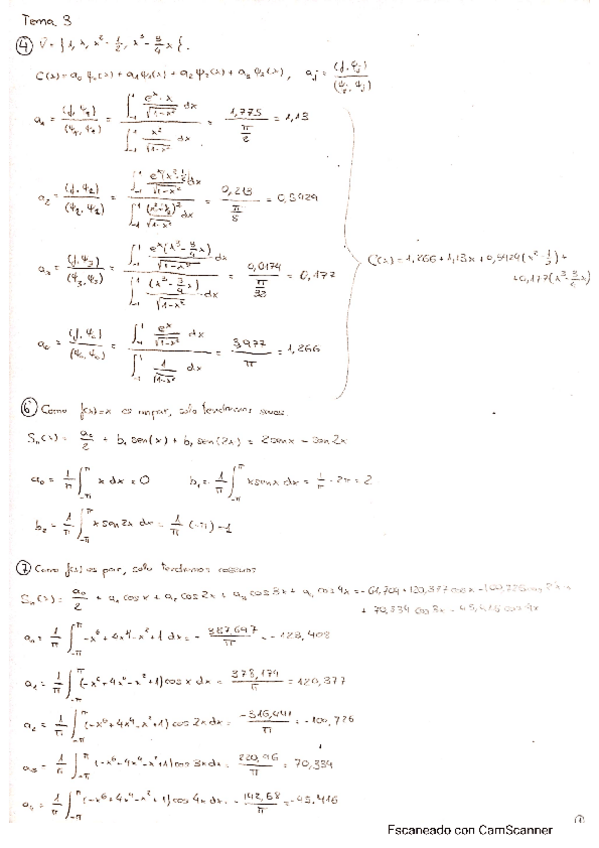 Tema 3
④ V = {1, x, x² - 1/2, x³ - 3/4 x}.
C(x) = a₀ φ₀(x) + a₁ φ₁(x) + a₂ φ₂(x) + a₃ φ₃(x), aj = (f, φj)/(φj, φj)
a₁ = (f, φ₁)/(φ₁, φ₁) = ∫₋₁¹ (eˣ·x)/√(1-x²) dx / ∫₋₁¹ x²/√(1-x²) dx = 1,775/(π/2) = 1,13
a₂ = (f, φ₂)/(φ₂, φ₂) = ∫₋₁¹ eˣ(x²-1/2)/√(1-x²) dx / ∫₋₁¹ (x²-1/2)²/√(1-x²) dx = 0,213/(π/8) = 0,5424
a₃ = (f, φ₃)/(φ₃, φ₃) = ∫₋₁¹ eˣ(x³-3/4 x)/√(1-x²) dx / ∫₋₁¹ (x³-3/4 x)/√(1-x²) dx = 0,0174/(π/32) = 0,177
C(x) = 1,266 + 1,13x + 0,5424(x² - 1/2) +
+ 0,177(x³ - 3/4 x)
a₀ = (f, φ₀)/(φ₀, φ₀) = ∫₋₁¹ eˣ/√(1-x²) dx / ∫₋₁¹ 1/√(1-x²) dx = 3,977/π = 1,266
⑥ Como f(x)=x es impar, solo tendremos senos
Sₙ(x) = a₀/2 + b₁ sen(x) + b₂ sen(2x) = 2senx - sen2x
a₀ = 1/π ∫₋π^π x dx = 0 b₁ = 1/π ∫₋π^π x senx dx = 1/π · 2π = 2
b₂ = 1/π ∫₋π^π x sen2x dx = 1/π (-π) = -1
⑦ Como f(x) es par, solo tendremos cosenos
Sₙ(x) = a₀/2 + a₁ cosx + a₂ cos2x + a₃ cos3x + a₄ cos4x = -61,704 + 120,377 cosx - 100,726 cos2x +
+ 70,334 cos3x - 45,416 cos4x
a₀ = 1/π ∫₋π^π -x⁶ + 4x⁴ - x² + 1 dx = -387,697/π = -123,408
a₁ = 1/π ∫₋π^π (-x⁶ + 4x⁴ - x² + 1) cosx dx = 378,174/π = 120,377
a₂ = 1/π ∫₋π^π (-x⁶ + 4x⁴ - x² + 1) cos2x dx = -316,441/π = -100,726
a₃ = 1/π ∫₋π^π (-x⁶ + 4x⁴ - x² + 1) cos3x dx = 220,96/π = 70,334
a₄ = 1/π ∫₋π^π (-x⁶ + 4x⁴ - x² + 1) cos4x dx = -142,68/π = -45,416
①
Escaneado con CamScanner